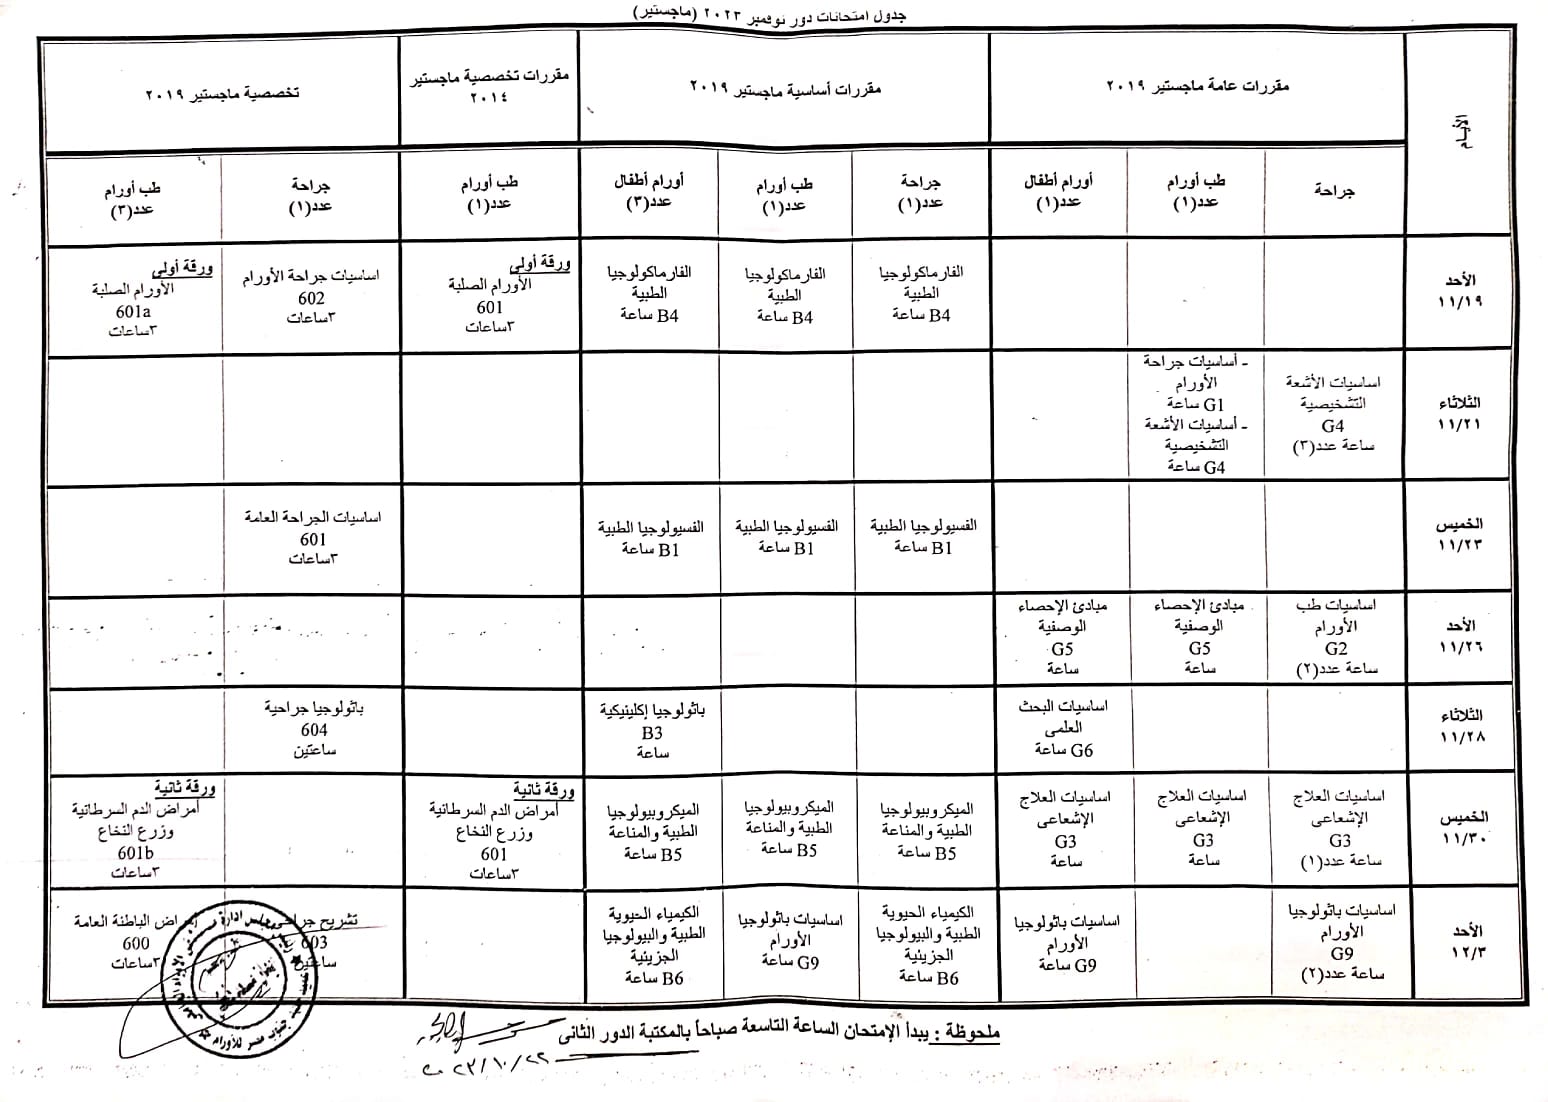 جدول امتحانات دور نوفمبر ٢٠٢٣ (ماجستير)
الأيام
مقررات عامة ماجستير ٢٠١٩
مقررات أساسية ماجستير ٢٠١٩
مقررات تخصصية ماجستير
٢٠١٤
تخصصية ماجستير ٢٠١٩
جراحة
طب أورام
عدد(١)
أورام أطفال
عدد(١)
جراحة
عدد(١)
طب أورام
عدد(١)
أورام أطفال
عدد(٣)
طب أورام
عدد(١)
جراحة
عدد(١)
طب أورام
عدد(٣)
الأحد
١١/١٩
الفارماكولوجيا
الطبية
B4 ساعة
الفارماكولوجيا
الطبية
B4 ساعة
الفارماكولوجيا
الطبية
B4 ساعة
ورقة أولى
الأورام الصلبة
601
٣ساعات
اساسيات جراحة الأورام
602
٣ساعات
ورقة أولى
الأورام الصلبة
601a
٣ساعات
الثلاثاء
١١/٢١
اساسيات الأشعة
التشخيصية
G4
ساعة عدد(٣)
- أساسيات جراحة
الأورام
G1 ساعة
- أساسيات الأشعة
التشخيصية
G4 ساعة
الخميس
١١/٢٣
الفسيولوجيا الطبية
B1 ساعة
الفسيولوجيا الطبية
B1 ساعة
الفسيولوجيا الطبية
B1 ساعة
اساسيات الجراحة العامة
601
٣ساعات
الأحد
١١/٢٦
اساسيات طب
الأورام
G2
ساعة عدد(٢)
مبادئ الإحصاء
الوصفية
G5
ساعة
مبادئ الإحصاء
الوصفية
G5
ساعة
الثلاثاء
١١/٢٨
اساسيات البحث
العلمى
G6 ساعة
باثولوجيا إكلينيكية
B3
ساعة
باثولوجيا جراحية
604
ساعتين
الخميس
١١/٣٠
اساسيات العلاج
الإشعاعى
G3
ساعة عدد(١)
اساسيات العلاج
الإشعاعى
G3
ساعة
اساسيات العلاج
الإشعاعى
G3
ساعة
الميكروبيولوجيا
الطبية والمناعة
B5 ساعة
الميكروبيولوجيا
الطبية والمناعة
B5 ساعة
الميكروبيولوجيا
الطبية والمناعة
B5 ساعة
ورقة ثانية
أمراض الدم السرطانية
وزرع النخاع
601
٣ساعات
ورقة ثانية
أمراض الدم السرطانية
وزرع النخاع
601b
٣ساعات
الأحد
١٢/٣
اساسيات باثولوجيا
الأورام
G9
ساعة عدد(٢)
اساسيات باثولوجيا
الأورام
G9 ساعة
الكيمياء الحيوية
الطبية والبيولوجيا
الجزيئية
B6 ساعة
اساسيات باثولوجيا
الأورام
G9 ساعة
الكيمياء الحيوية
الطبية والبيولوجيا
الجزيئية
B6 ساعة
تشريح
603
ساعتين
الباطنة العامة
600
٣ساعات
ملحوظة : يبدأ الإمتحان الساعة التاسعة صباحاً بالمكتبة الدور الثانى
٢٠٢٣/١٠/٢٢